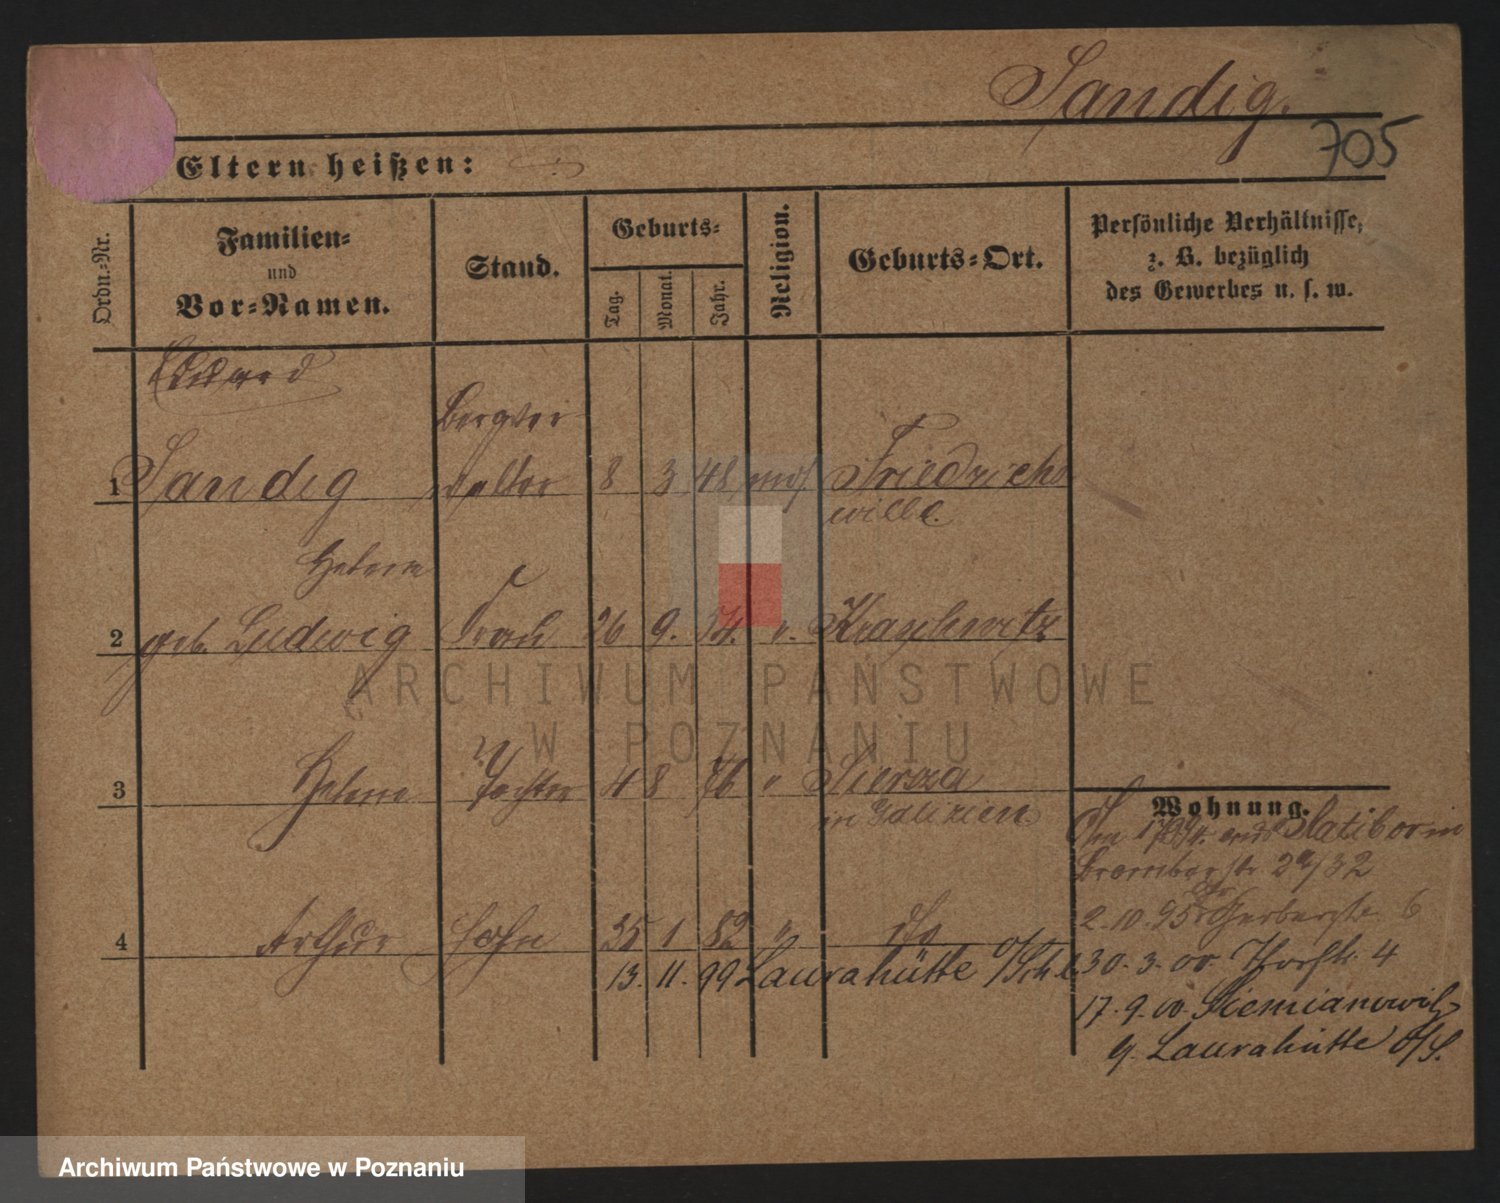 Sandig.
705
Eltern heißen:
Ordn.=Nr.
Familien=
und
Vor=Namen.
Stand.
Geburts=
Tag.
Monat.
Jahr.
Religion.
Geburts=Ort.
Persönliche Verhältnisse,
z. B. bezüglich
des Gewerbes u. s. w.
Eduard
Bergver
1 Sandig walter 8 3 48 mos Friedrichs
wille.
Helene
2 geb. Ludwig Frau 26 9.
3 Helene Tochter 4 8 76 " Siersza
in Galizien
4 Arthur Sohn 1 82 "
13. 11. 99 Laurahütte O/Schl.
Wohnung.
Ratibor
Brombergstr.
2.10.95 6
30.3.00. 4
17.9.00. Siemianowitz
b. Laurahütte O/S.
ARCHIWUM PAŃSTWOWE
W POZNANIU
Archiwum Państwowe w Poznaniu